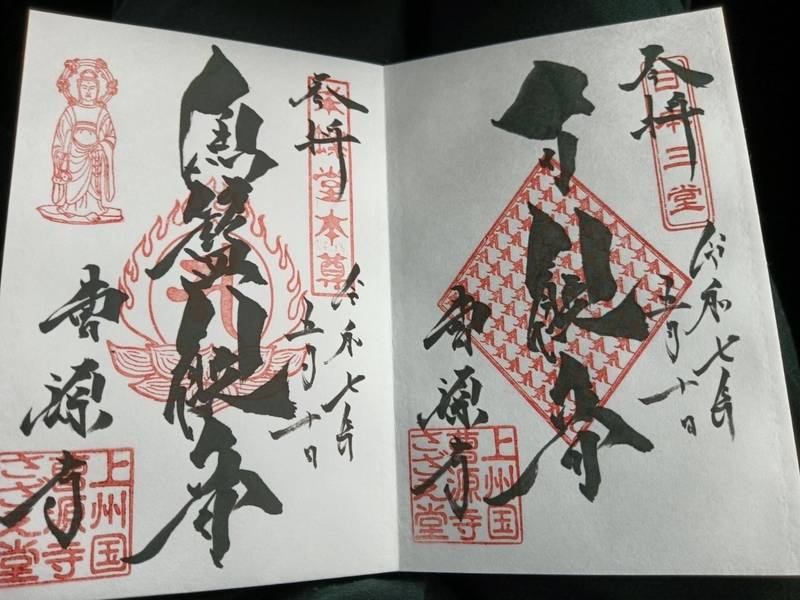 奉拝
日本三堂
令和七年
五月十日
観音
曹源寺
上州国
曹源寺
さざえ堂
奉拝
栄螺堂本尊
令和七年
五月十日
魚籃観音
曹源寺
上州国
曹源寺
さざえ堂